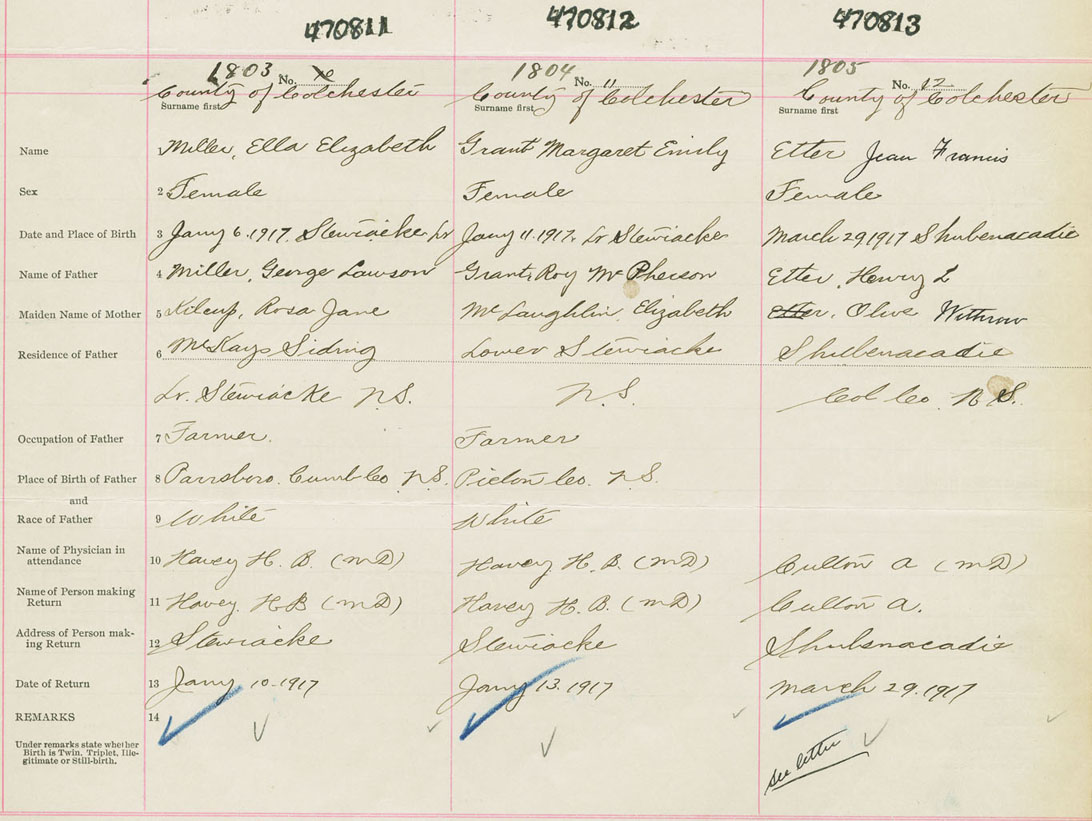 470811 470812 470813
1803 No. 10 1804 No. 11 1805 No. 12
County of Colchester County of Colchester County of Colchester
Surname first Surname first Surname first
Name 1 Miller, Ella Elizabeth Grant Margaret Emily Etter Jean Francis
Sex 2 Female Female Female
Date and Place of Birth 3 Jany 6.1917. Stewiacke Lr Jany 11.1917. Lr Stewiacke March 29 1917 Shubenacadie
Name of Father 4 Miller, George Lawson Grant, Roy McPherson Etter, Henry L
Maiden Name of Mother 5 Kilcup, Rosa Jane McLaughlin, Elizabeth Etter, Olive Withrow
Residence of Father 6 McKays Siding Lower Stewiacke Shubenacadie
Lr. Stewiacke N.S. N.S. Col Co. N.S.
Occupation of Father 7 Farmer. Farmer
Place of Birth of Father 8 Parrsboro. Cumb Co N.S. Pictou Co. N.S.
and
Race of Father 9 White White
Name of Physician in
attendance 10 Havey H. B. (MD) Havey, H. B. (MD) Cutton A (MD)
Name of Person making
Return 11 Havey. H B (MD) Havey H. B. (MD) Cutton A.
Address of Person mak-
ing Return 12 Stewiacke Stewiacke Shubenacadie
Date of Return 13 Jany 10.1917 Jany 13.1917 March 29.1917
REMARKS 14
Under remarks state whether
Birth is Twin, Triplet, Ille-
gitimate or Still-birth.
see letter